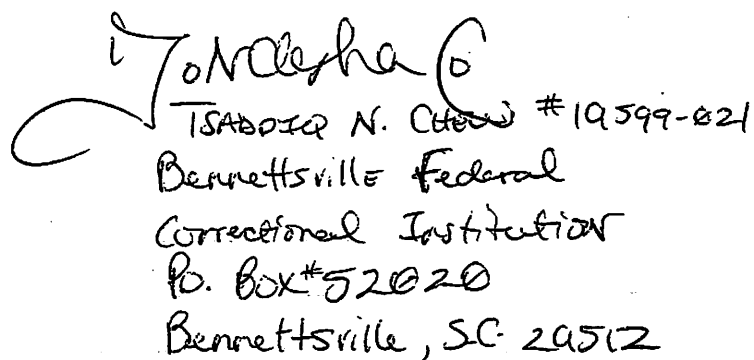 TSADDIQ N. CHEW #19599-021
Bennettsville Federal
Correctional Institution
P.O. Box #52020
Bennettsville, S.C. 29512